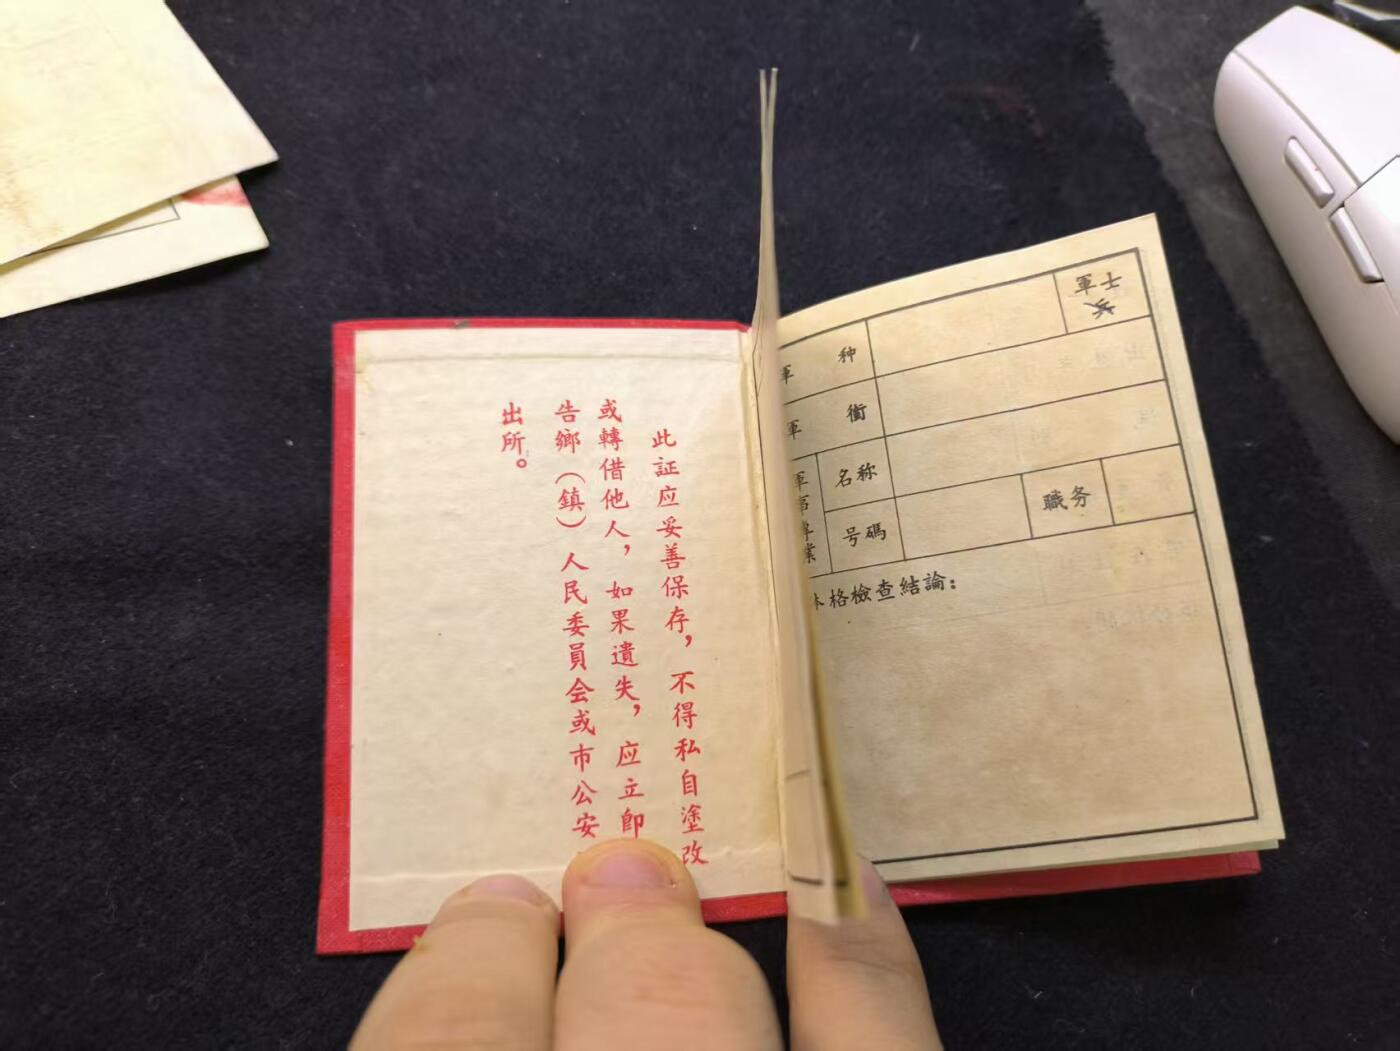 此証应妥善保存，不得私自塗改
或轉借他人，如果遺失，应立卽
告鄉（鎮）人民委員会或市公安
出所。
軍种
軍銜
名称
号碼 職务
格檢查結論：